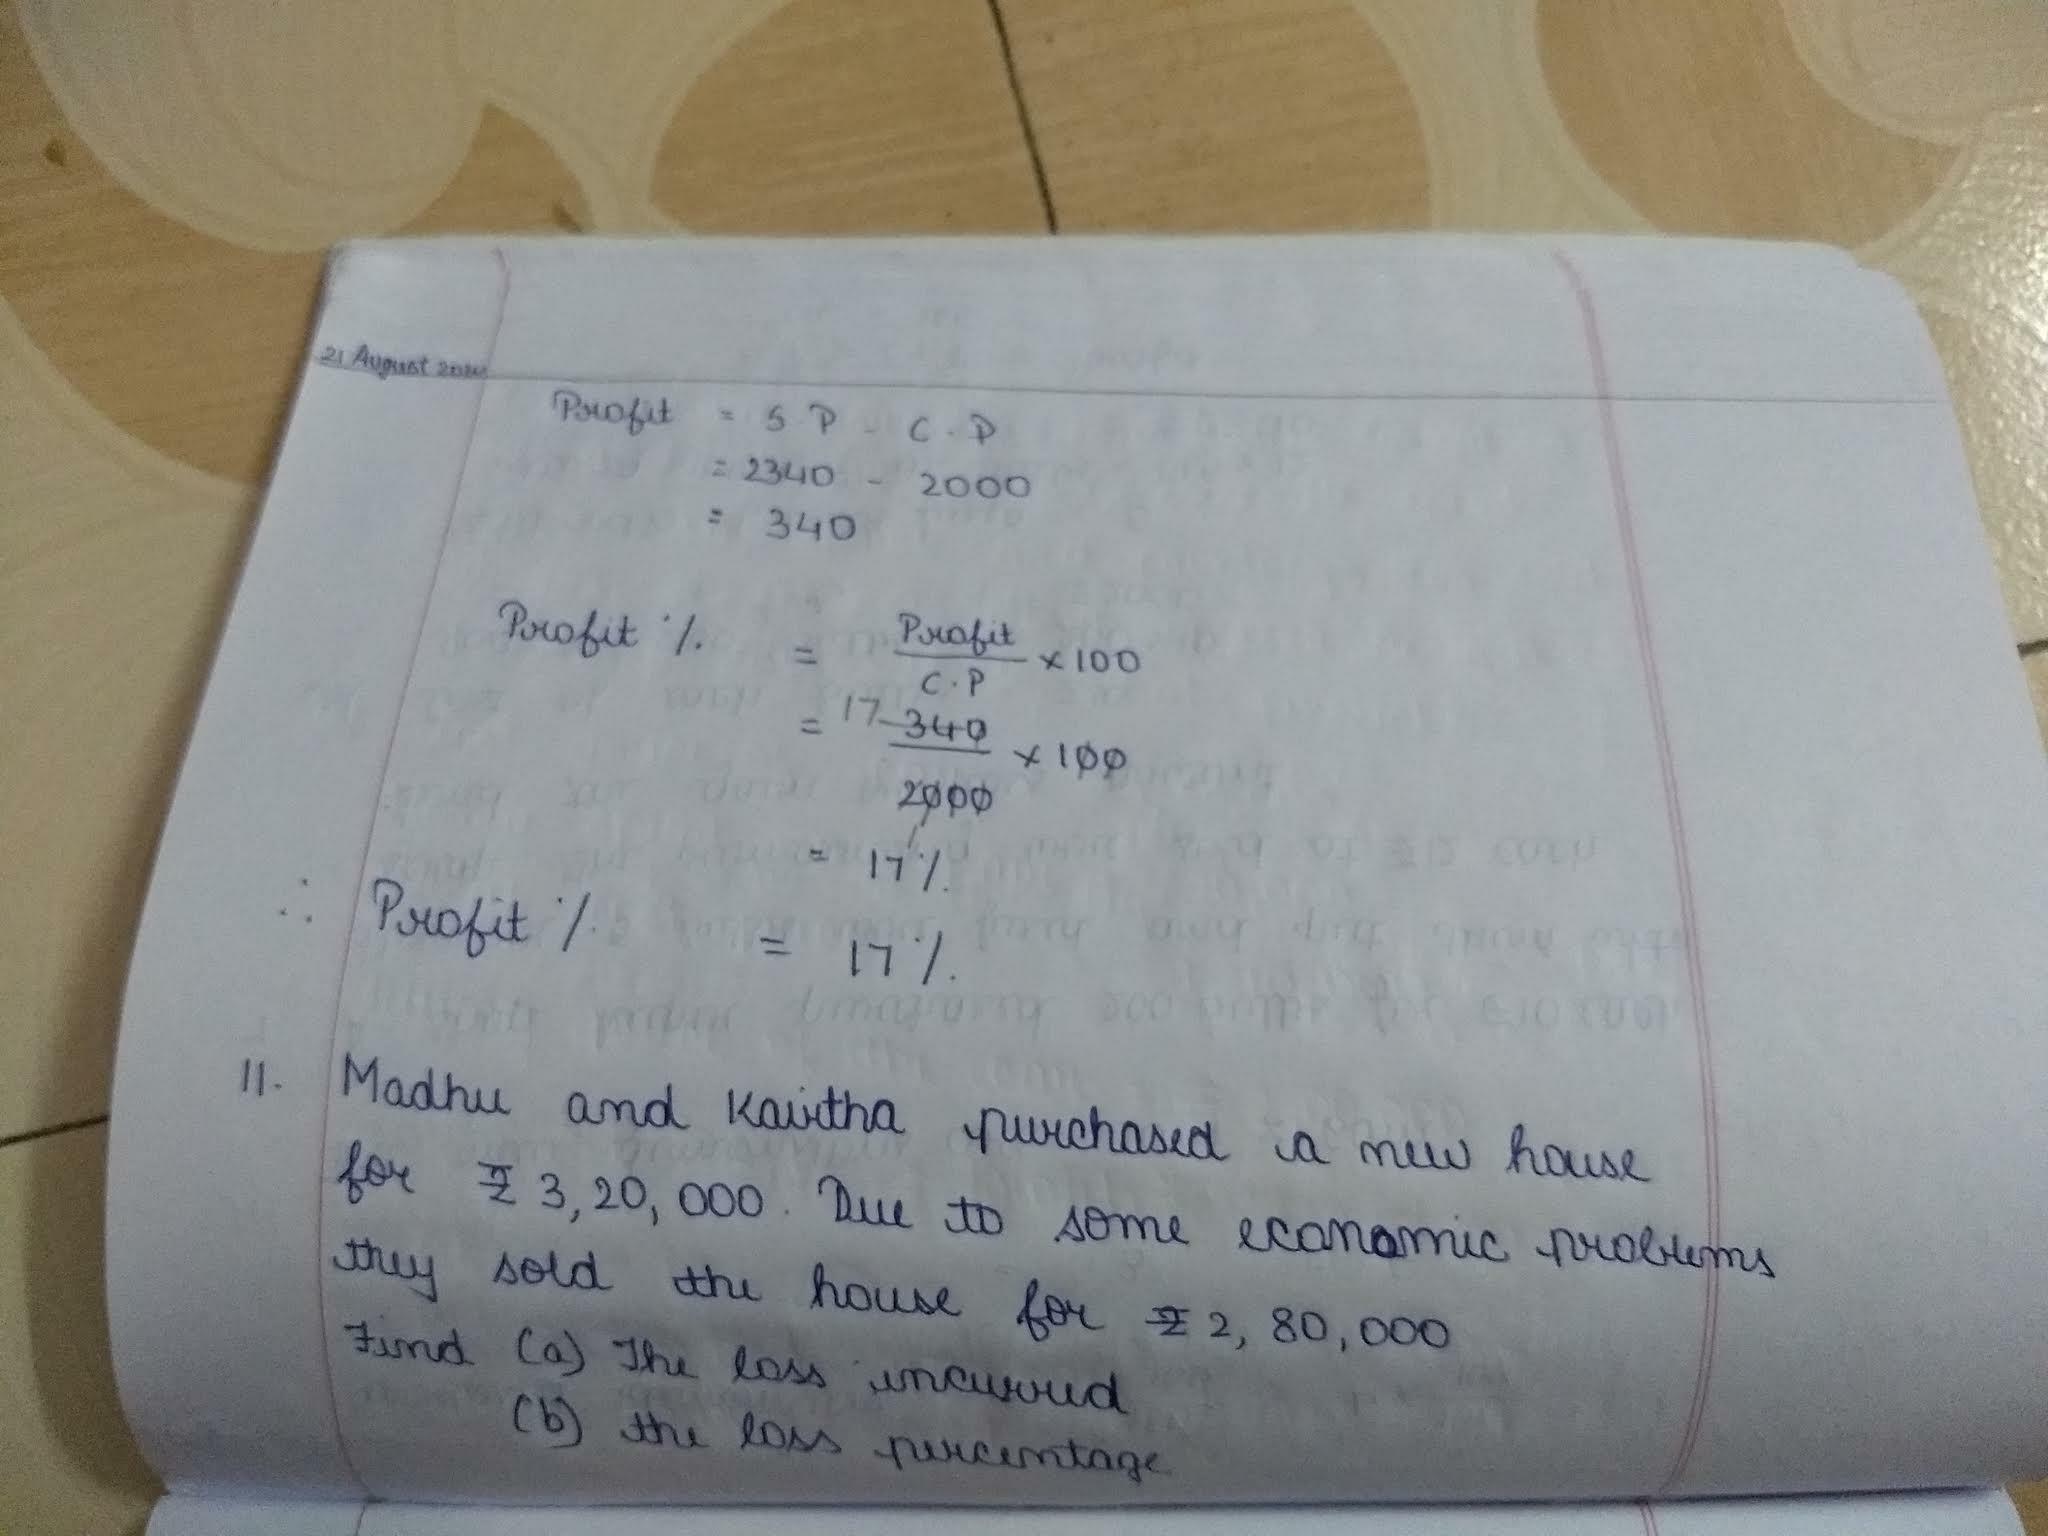 21 August 2020
Profit = S.P - C.P
= 2340 - 2000
= 340
Profit % = Profit/C.P ×100
= 17 340/2000 × 100
= 17%.
∴ Profit % = 17%.
11. Madhu and Kavitha purchased a new house
for ₹ 3,20,000. Due to some economic problems
they sold the house for ₹ 2,80,000
Find (a) The loss incurred
(b) the loss percentage